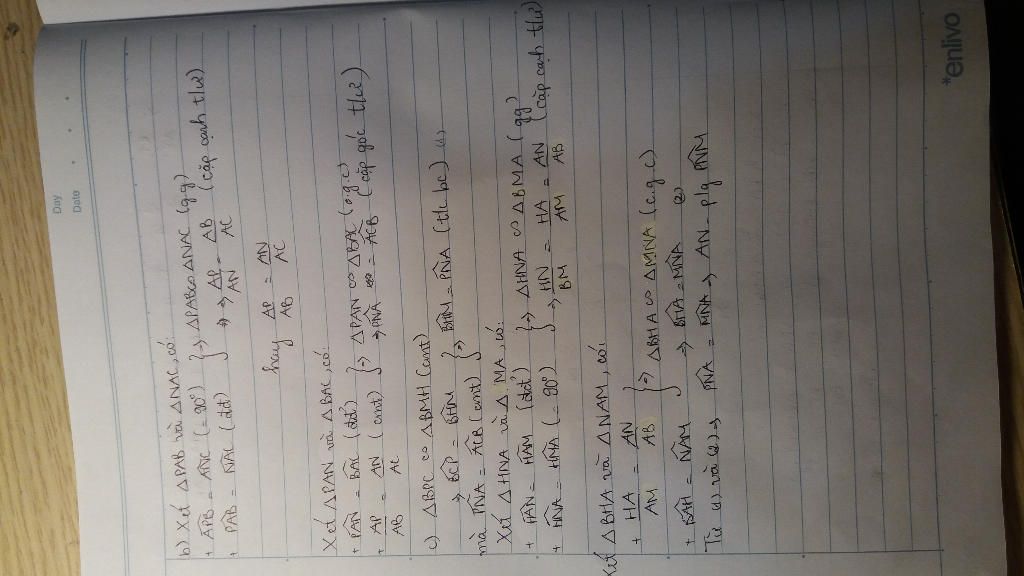 Day
Date
b) Xét △PAB và △NAC, có:
+ APB = ANC (= 90°) } => △PAB ∽ △NAC (g.g)
+ PAB = NAC (đđ) => AP/AN = AB/AC (cặp cạnh t/ư)
hay AP/AB = AN/AC
Xét △PAN và △BAC, có:
+ PAN = BAC (đđ) } => △PAN ∽ △BAC (c.g.c)
+ AP/AB = AN/AC (cmt) => PNA = ACB (cặp góc t/ư)
c) △BPC ∽ △BMH (cmt)
=> BCP = BHM } => BHM = PNA (t/c bc) (1)
mà PNA = ACB (cmt)
Xét △HNA và △ MA, có:
+ HAN = HAM (đđ) } => △HNA ∽ △BMA (gg)
+ HNA = HNA (= 90°) => HN/BM = HA/AM = AN/AB (cặp cạnh t/ư)
Xét △BHA và △NAM, có:
+ HA/AM = AN/AB } => △BHA ∽ △MNA (c.g.c)
+ BAH = NAM => BHA = MNA (2)
Từ (1) và (2) => PNA = MNA => AN - p/g PNM
*enlivo